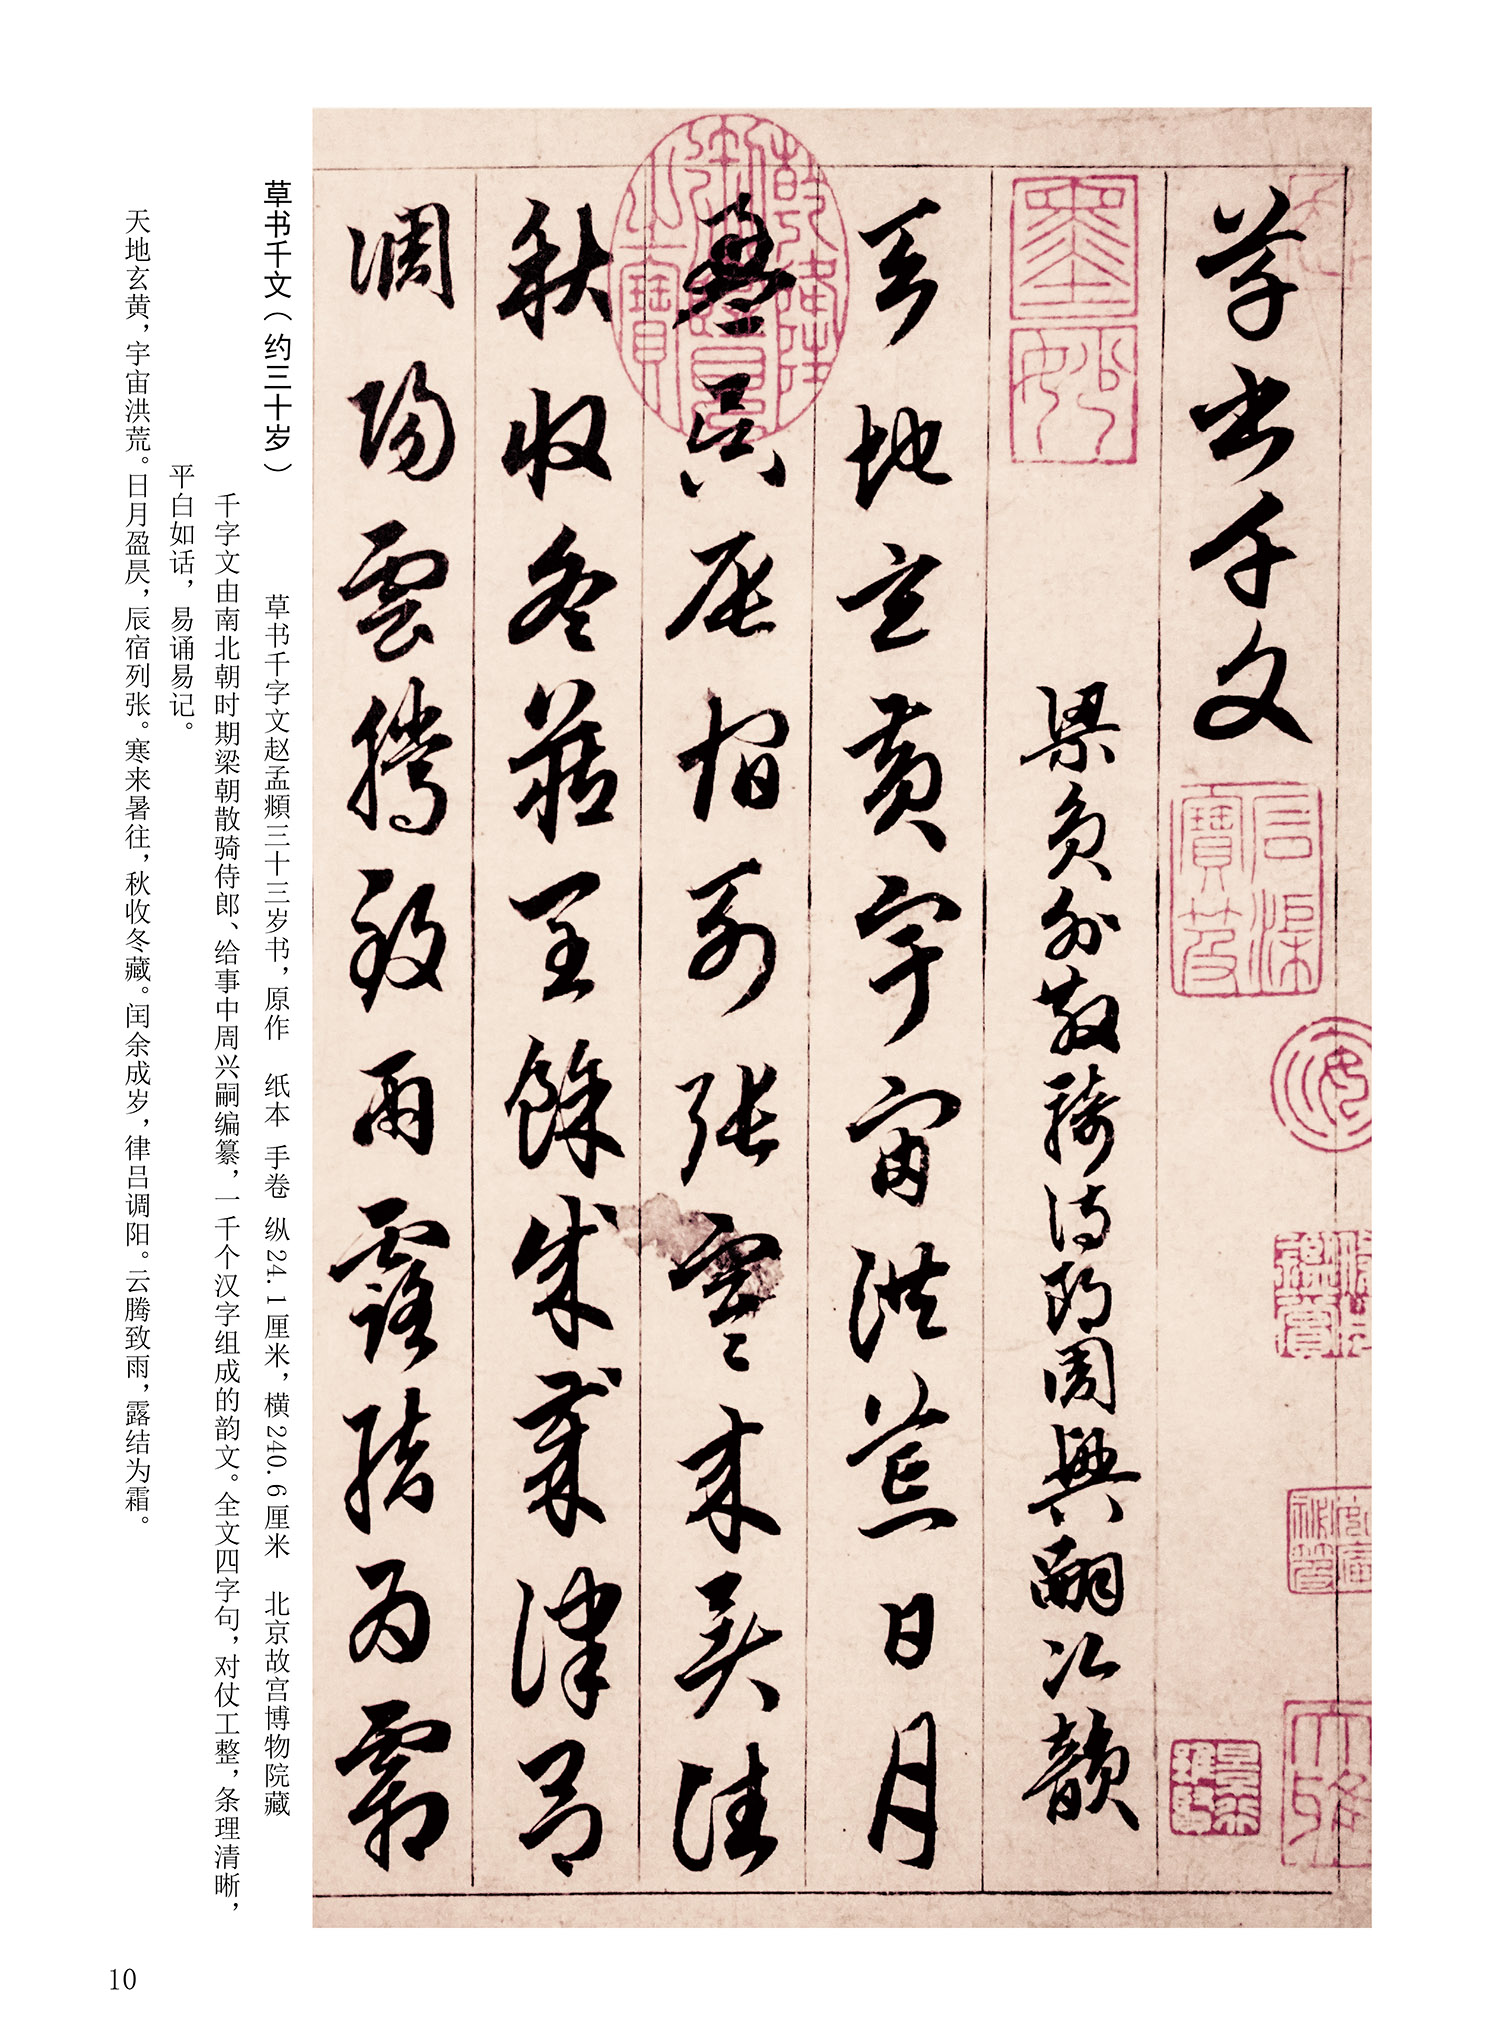 草書千文
石渠寶笈
大雅
景行維賢
墨妙
梁員外散騎侍郎周興嗣次韻
天地玄黃宇宙洪荒日月
乾隆御覽之寶
盈昃辰宿列張寒來暑往
秋收冬藏閏餘成歲律呂
調陽雲騰致雨露結為霜
草书千文（约三十岁）
草书千字文赵孟頫三十三岁书，原作　纸本　手卷　纵24.1厘米，横240.6厘米　北京故宫博物院藏
千字文由南北朝时期梁朝散骑侍郎、给事中周兴嗣编纂，一千个汉字组成的韵文。全文四字句，对仗工整，条理清晰，
平白如话，易诵易记。
天地玄黄，宇宙洪荒。日月盈昃，辰宿列张。寒来暑往，秋收冬藏。闰余成岁，律吕调阳。云腾致雨，露结为霜。
10